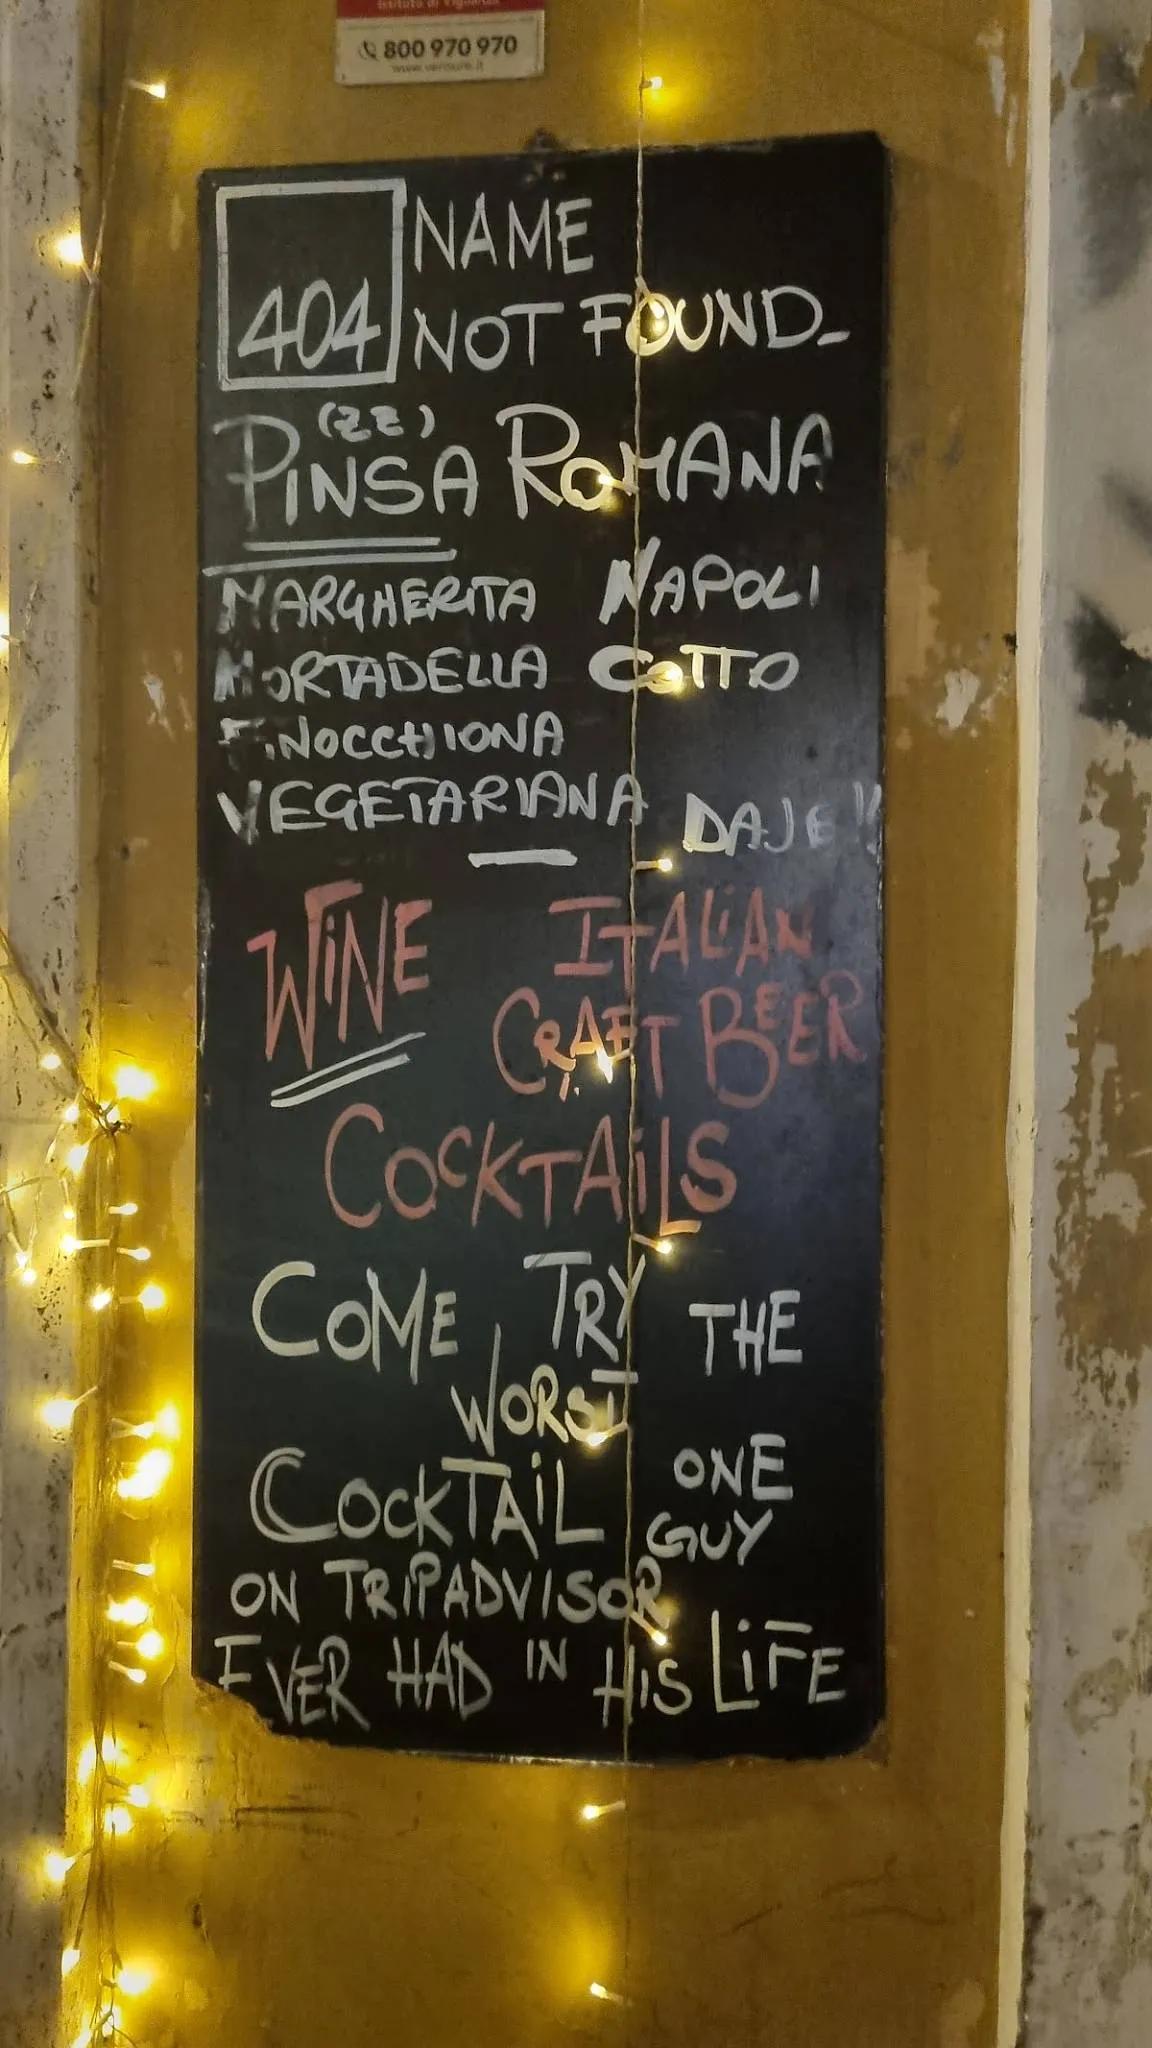 Istituto di Vigilanza
800 970 970
www.verisure.it
404 NAME
NOT FOUND_
(ZZ)
PINSA ROMANA
MARGHERITA NAPOLI
MORTADELLA COTTO
FINOCCHIONA
VEGETARIANA DAJE!!
WINE ITALIAN
CRAFT BEER
COCKTAILS
COME, TRY THE
WORST
COCKTAIL ONE
GUY
ON TRIPADVISOR
EVER HAD IN HIS LIFE